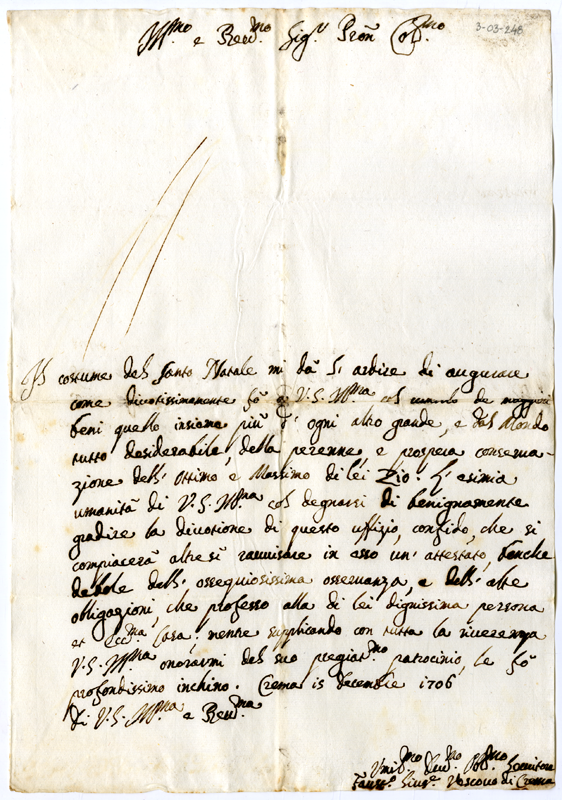 Ill.mo e Rev.mo Sig.r Pron Col.mo
3-03-248
Il costume del Santo Natale mi dà l'ardire di augurare
come divotissimamente fò a V.S. Ill.ma col cumulo de maggiori
beni quello insieme più d'ogni altro grande, e dal Mondo
tutto desiderabile, della perenne, e prospera conserva-
zione dell'Ottimo e Massimo di lei Zio. L'esimia
umanità di V.S. Ill.ma col degnarsi di benignamente
gradire la divotione di questo uffizio, confido, che si
compiacerà altresì ravvisare in esso un'attestato, benche
debole dell'ossequiosissima osservanza, e dell'alte
obligazioni, che professo alla di lei dignissima persona
et Ecc.ma Casa; mentre supplicando con tutta la riverenza
V.S. Ill.ma onorarmi del suo pregiat.mo patrocinio, le fò
profondissimo inchino. Crema 15 decembre 1706
di V.S. Ill.ma e Rev.ma
Umil.mo Dev.mo Obl.mo Servitore
Faus.o Gius.e Vescovo di Crema